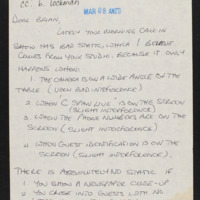 CC. B. LOCKMAN
MAR 08 REC'D
DEAR BRIAN,
LATELY YOUR MORNING CALL IN
SHOW HAS BAD STATIC, WHICH I
COMES FROM YOUR STUDIO, BECAUSE IT ONLY
HAPPENS WHEN:
1. THE CAMERA IS ON A WIDE ANGLE OF THE
TABLE (VERY BAD INTERFERENCE)
2. WHEN "C SPAN LIVE" IS ON THE SCREEN
(SLIGHT INTERFERENCE)
3. WHEN THE PHONE NUMBERS ARE ON THE
SCREEN (SLIGHT INTERFERENCE)
4. WHEN GUEST IDENTIFICATION IS ON THE
SCREEN (SLIGHT INTERFERENCE).
THERE IS ABSOLUTELY NO STATIC IF
1 YOU SHOW A NEWSPAPER CLOSE-UP
2 YOU CLOSE INTO GUESTS WITH NO